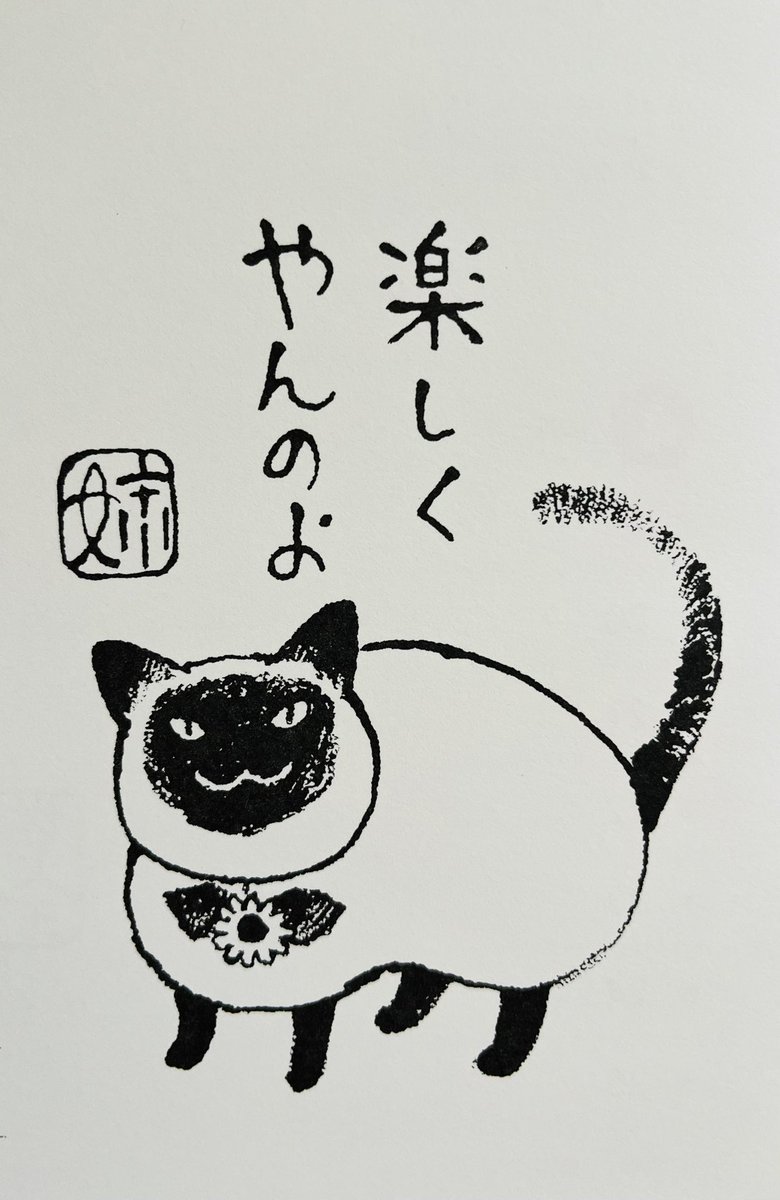 楽しく
やんのよ
姉